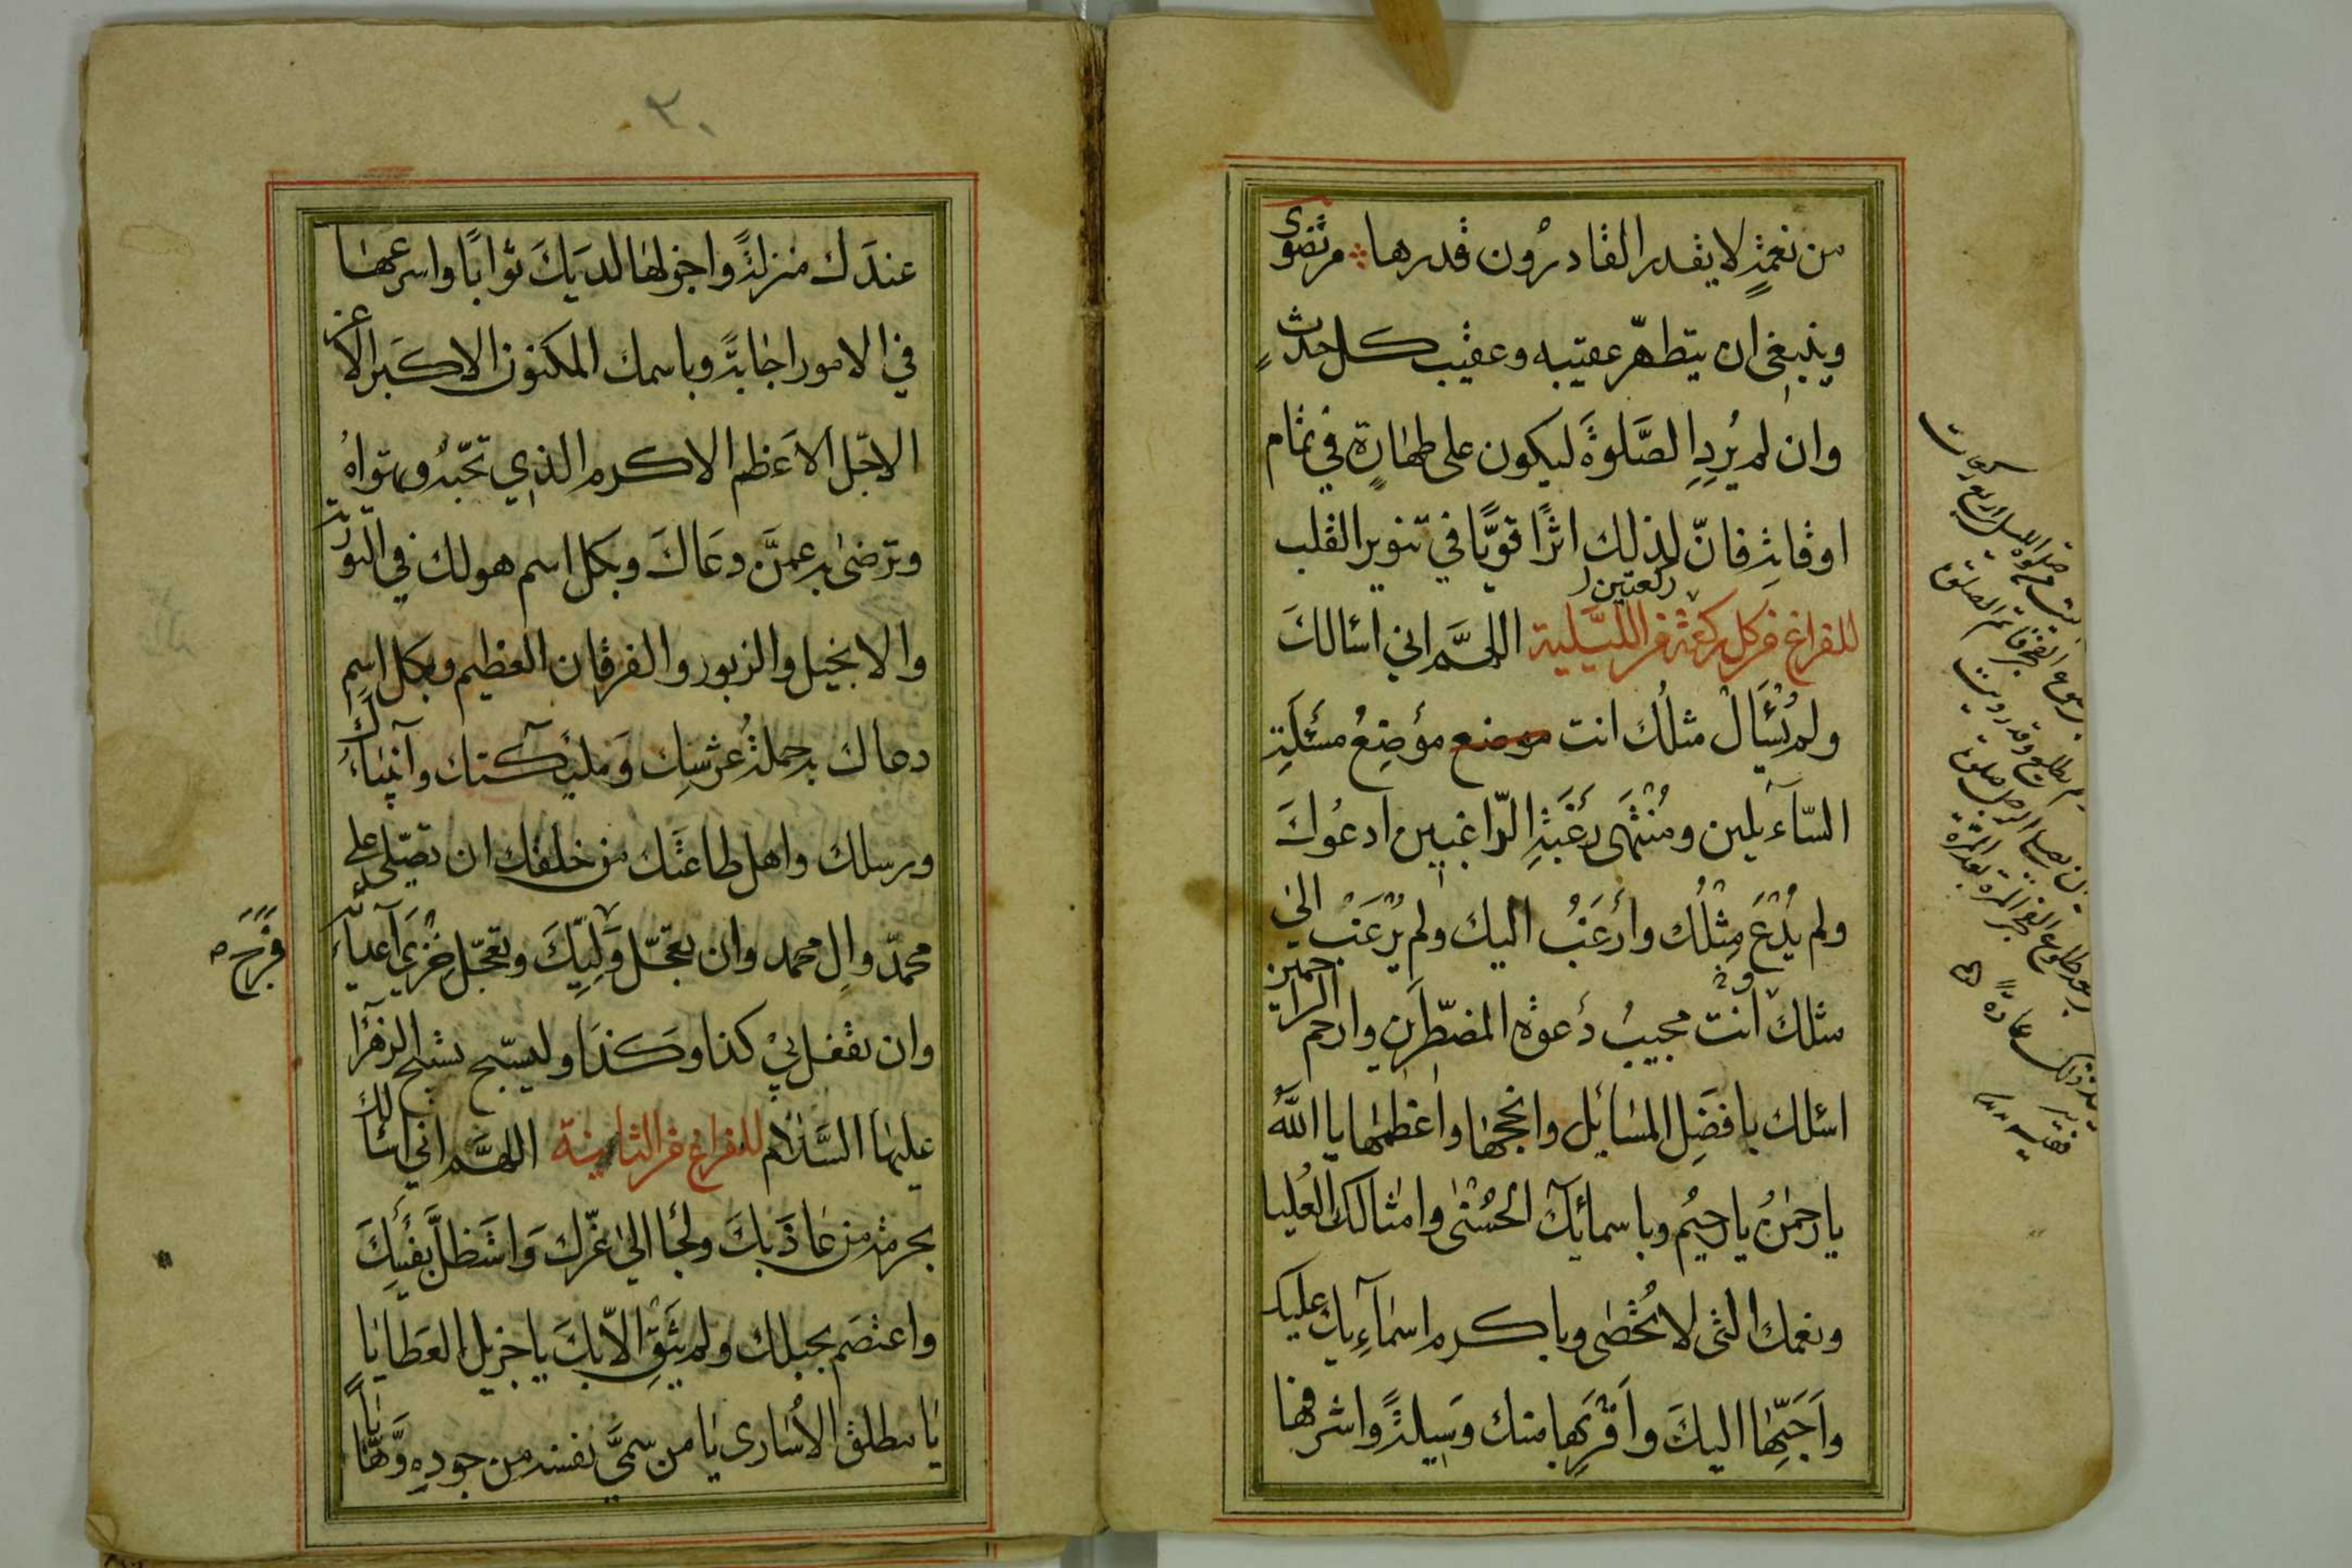 من نعمةٍ لا يقدر القادرون قدرها مرتضوى
وينبغي ان يتطهّر عقيبه وعقيب كل حدثٍ
وان لم يُرِدِ الصَّلوةَ ليكون على طهارةٍ في تمام
اوقاتِه فانّ لذلك اثرًا قويًّا في تنوير القلب
ركعتين
للفراغ من كل ركعة من الليلية اللهمَّ اني اسالكَ
ولم يُسْئَالْ مثلُك انت موضع مؤضِعُ مسئَلَةِ
السّآءيلين ومُنْتَهى رَغْبَةِ الرّاغبين ادعُوكَ
ولم يُدْعَ مِثْلُك وأرغَبُ اليك ولم يُرْغَبْ الى
مثلكَ أنت مجيبُ دَعوة المضطّرين وارحم الراحمين
اسئلك بافضَلِ المسَائِل وانجحها واعظمها يا اللّٰهُ
يا رحمٰنُ يا رحيُم وباسمائكَ الحُسْنى وامثالك العُليا
ونعمك التى لا تُحْصٰى وباكرم اسمآءِيك عليك
واَحَبِّها اليكَ واَقْرَبِها منك وَسِيلةً واشرفها
٣٠
عندَك منزلةً واجزلها لديَكَ ثوابًا واسرعها
في الامور اجابةً وباسمك المكنون الاكبَر الاعز
الاجّل الاعَظم الاكرم الذي تحّبهُ وتهواهُ
وترضىٰ به عمنَّ دعَاكَ وبكل اسم هو لك في التورية
والانجيل والزبور والفرقان العظيم وبكل اسم
دعاك به حملةُ عرشِك وَملئكتك وانبياءك
ورسلك واهل طاعتَك من خلقك ان تصّلى على
محمدّ والِ محمد وان تعجّل وَلِيِّكَ وتعجّل خزيَ اعدآئه
فَرَجَ
وان تفعل بيْ كذا وكذَا وليسّبح تسبيح الزهرآ
عليهَا السَّلام للفراغ من الثانية اللهمَّ اني اسالك
بحرمة من عَاذَ بكَ ولجأ الىٰ عّزك وَاسَتظلَّ بفيئِكَ
واعتصَم بحبلك ولم يَثِقْ الاّ بكَ يا جزيل العَطايَا
يَا مطلق الاُسَارى يَا من سمىَّ نفسه من جودِه وَهَّابًا